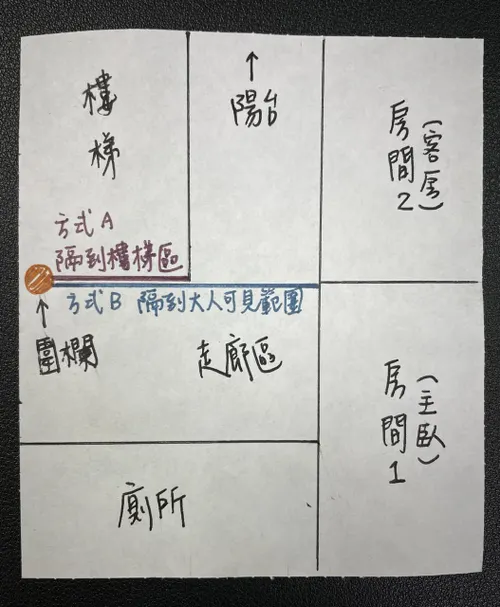 樓梯
↑
陽台
房間2
(客房)
方式A
隔到樓梯區
方式B 隔到大人可見範圍
↑
圍欄
走廊區
房間1
(主臥)
廁所